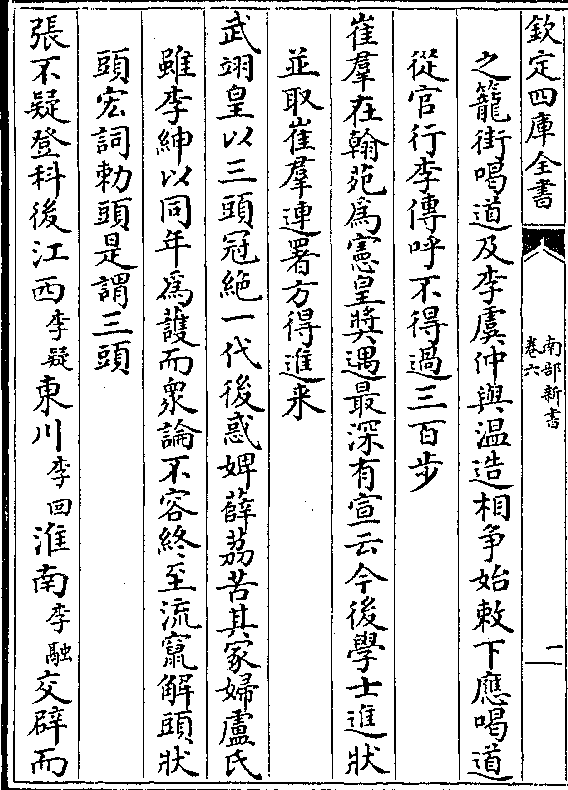 欽定四庫全書
南部新書
卷六
一
之籠街喝道及李虞仲與温造相争始敕下應喝道
從官行李傳呼不得過三百步
崔羣在翰苑爲憲皇奬遇最深有宣云今後學士進狀
並取崔羣連署方得進来
武翊皇以三頭冠絶一代後惑婢薛荔苦其冡婦盧氏
雖李紳以同年爲䕶而衆論不容終至流竄解頭狀
頭宏詞勅頭是謂三頭
張不疑登科後江西李疑東川李回淮南李融交辟而